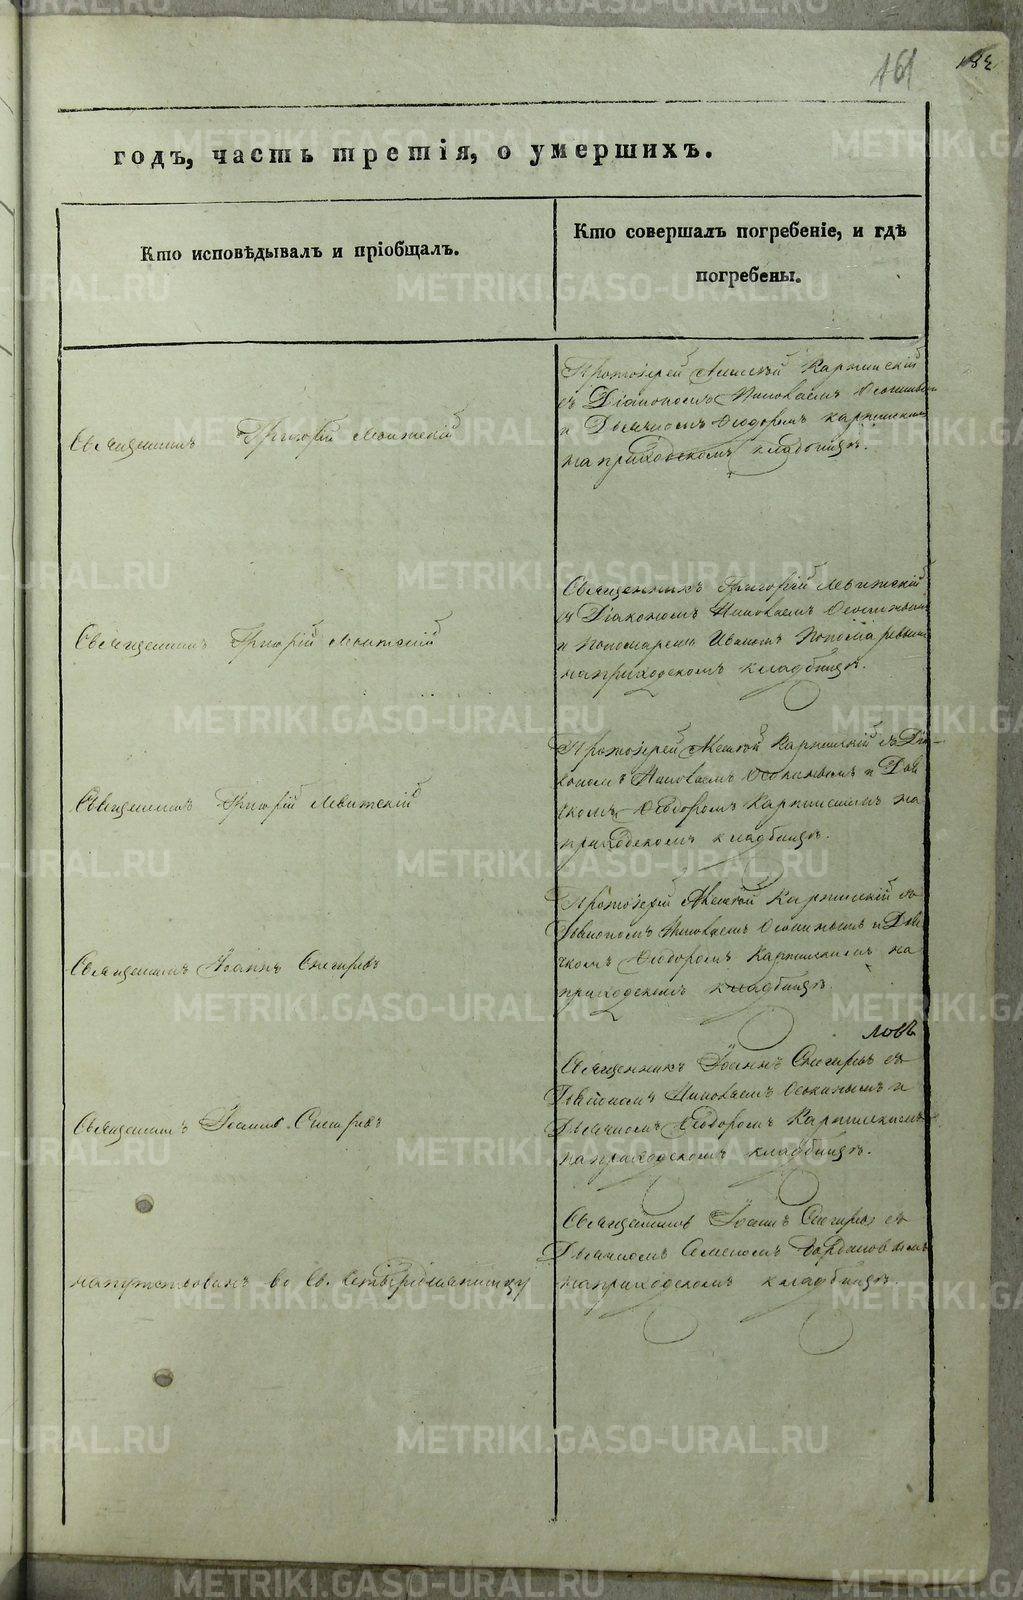 161
182
годъ, часть третія, о умершихъ.
Кто исповѣдывалъ и пріобщалъ.
Кто совершалъ погребеніе, и гдѣ
погребены.
Священникъ Григорій Левитскій
Протоіерей Алексѣй Карпинскій
съ Діакономъ Николаемъ Осокинымъ
и Дьячкомъ Ѳеодоромъ Карпинскимъ
на приходскомъ кладбищѣ.
Священникъ Григорій Левитскій
Священникъ Григорій Левитскій
съ Діакономъ Николаемъ Осокинымъ
и Пономаремъ Иваномъ Пономаревымъ
на приходскомъ кладбищѣ.
Священникъ Григорій Левитскій
Протоіерей Алексѣй Карпинскій съ Діа-
кономъ Николаемъ Осокинымъ и Дьяч
комъ Ѳеодоромъ Карпинскимъ на
приходскомъ кладбищѣ.
Священникъ Іоаннъ Снегиревъ
Протоіерей Алексѣй Карпинскій съ
Діакономъ Николаемъ Осокинымъ и Дьяч
комъ Ѳеодоромъ Карпинскимъ на
приходскомъ кладбищѣ.
ловъ
Священникъ Іоаннъ Снегиревъ
Священникъ Іоаннъ Снегиревъ съ
Діакономъ Николаемъ Осокинымъ и
Дьячкомъ Ѳеодоромъ Карпинскимъ
на приходскомъ кладбищѣ.
напутствованъ во Св.
Священникъ Іоаннъ Снегиревъ съ
Дьячкомъ Семеномъ
на приходскомъ кладбищѣ.
METRIKI.GASO-URAL.RU